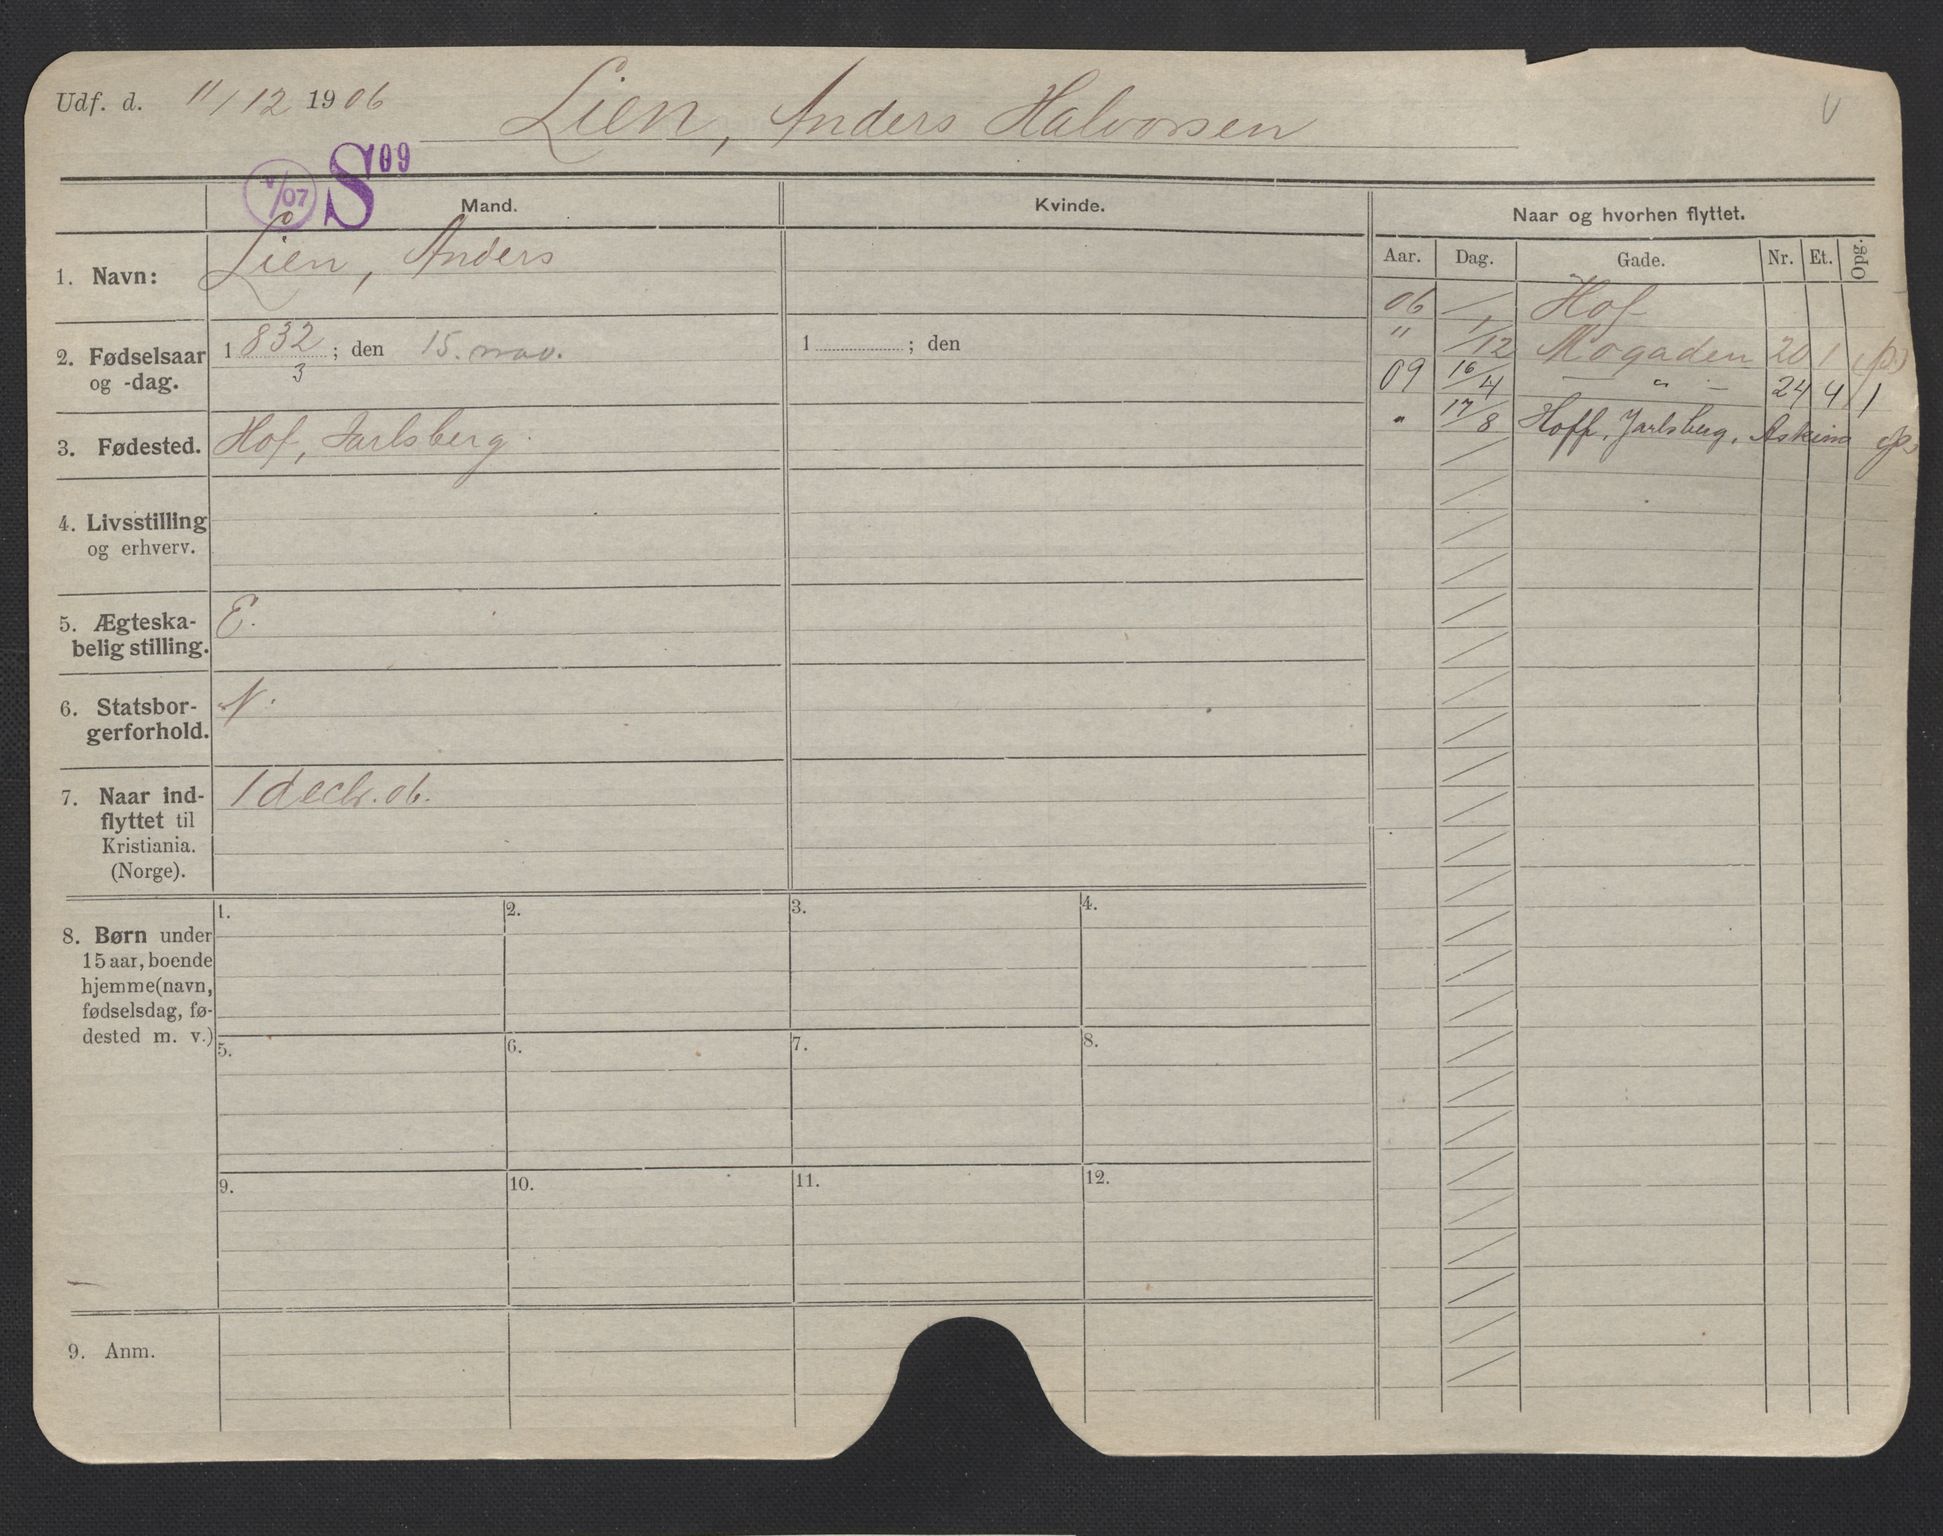 Udf. d. 11/12 1906 Lien, Anders Halvorsen
V/07 S09
Mand. Kvinde. Naar og hvorhen flyttet.
Aar. Dag. Gade. Nr. Et. Opg.
1. Navn: Lien, Anders
2. Fødselsaar og -dag.
1832; den 15. nov. 1 ; den
3
3. Fødested. Hof, Jarlsberg.
4. Livsstilling
og erhverv.
5. Ægteska-
belig stilling. E.
6. Statsbor-
gerforhold. N.
7. Naar ind-
flyttet til
Kristiania.
(Norge).
1 decbr. 06.
8. Børn under
15 aar, boende
hjemme (navn,
fødselsdag, fø-
dested m. v.)
1. 2. 3. 4.
5. 6. 7. 8.
9. 10. 11. 12.
9. Anm.
06 / Hof
" 1/12 Mogaden 20 1
09 16/4 — " — 24 4 1
" 17/8 Hoff, Jarlsberg,